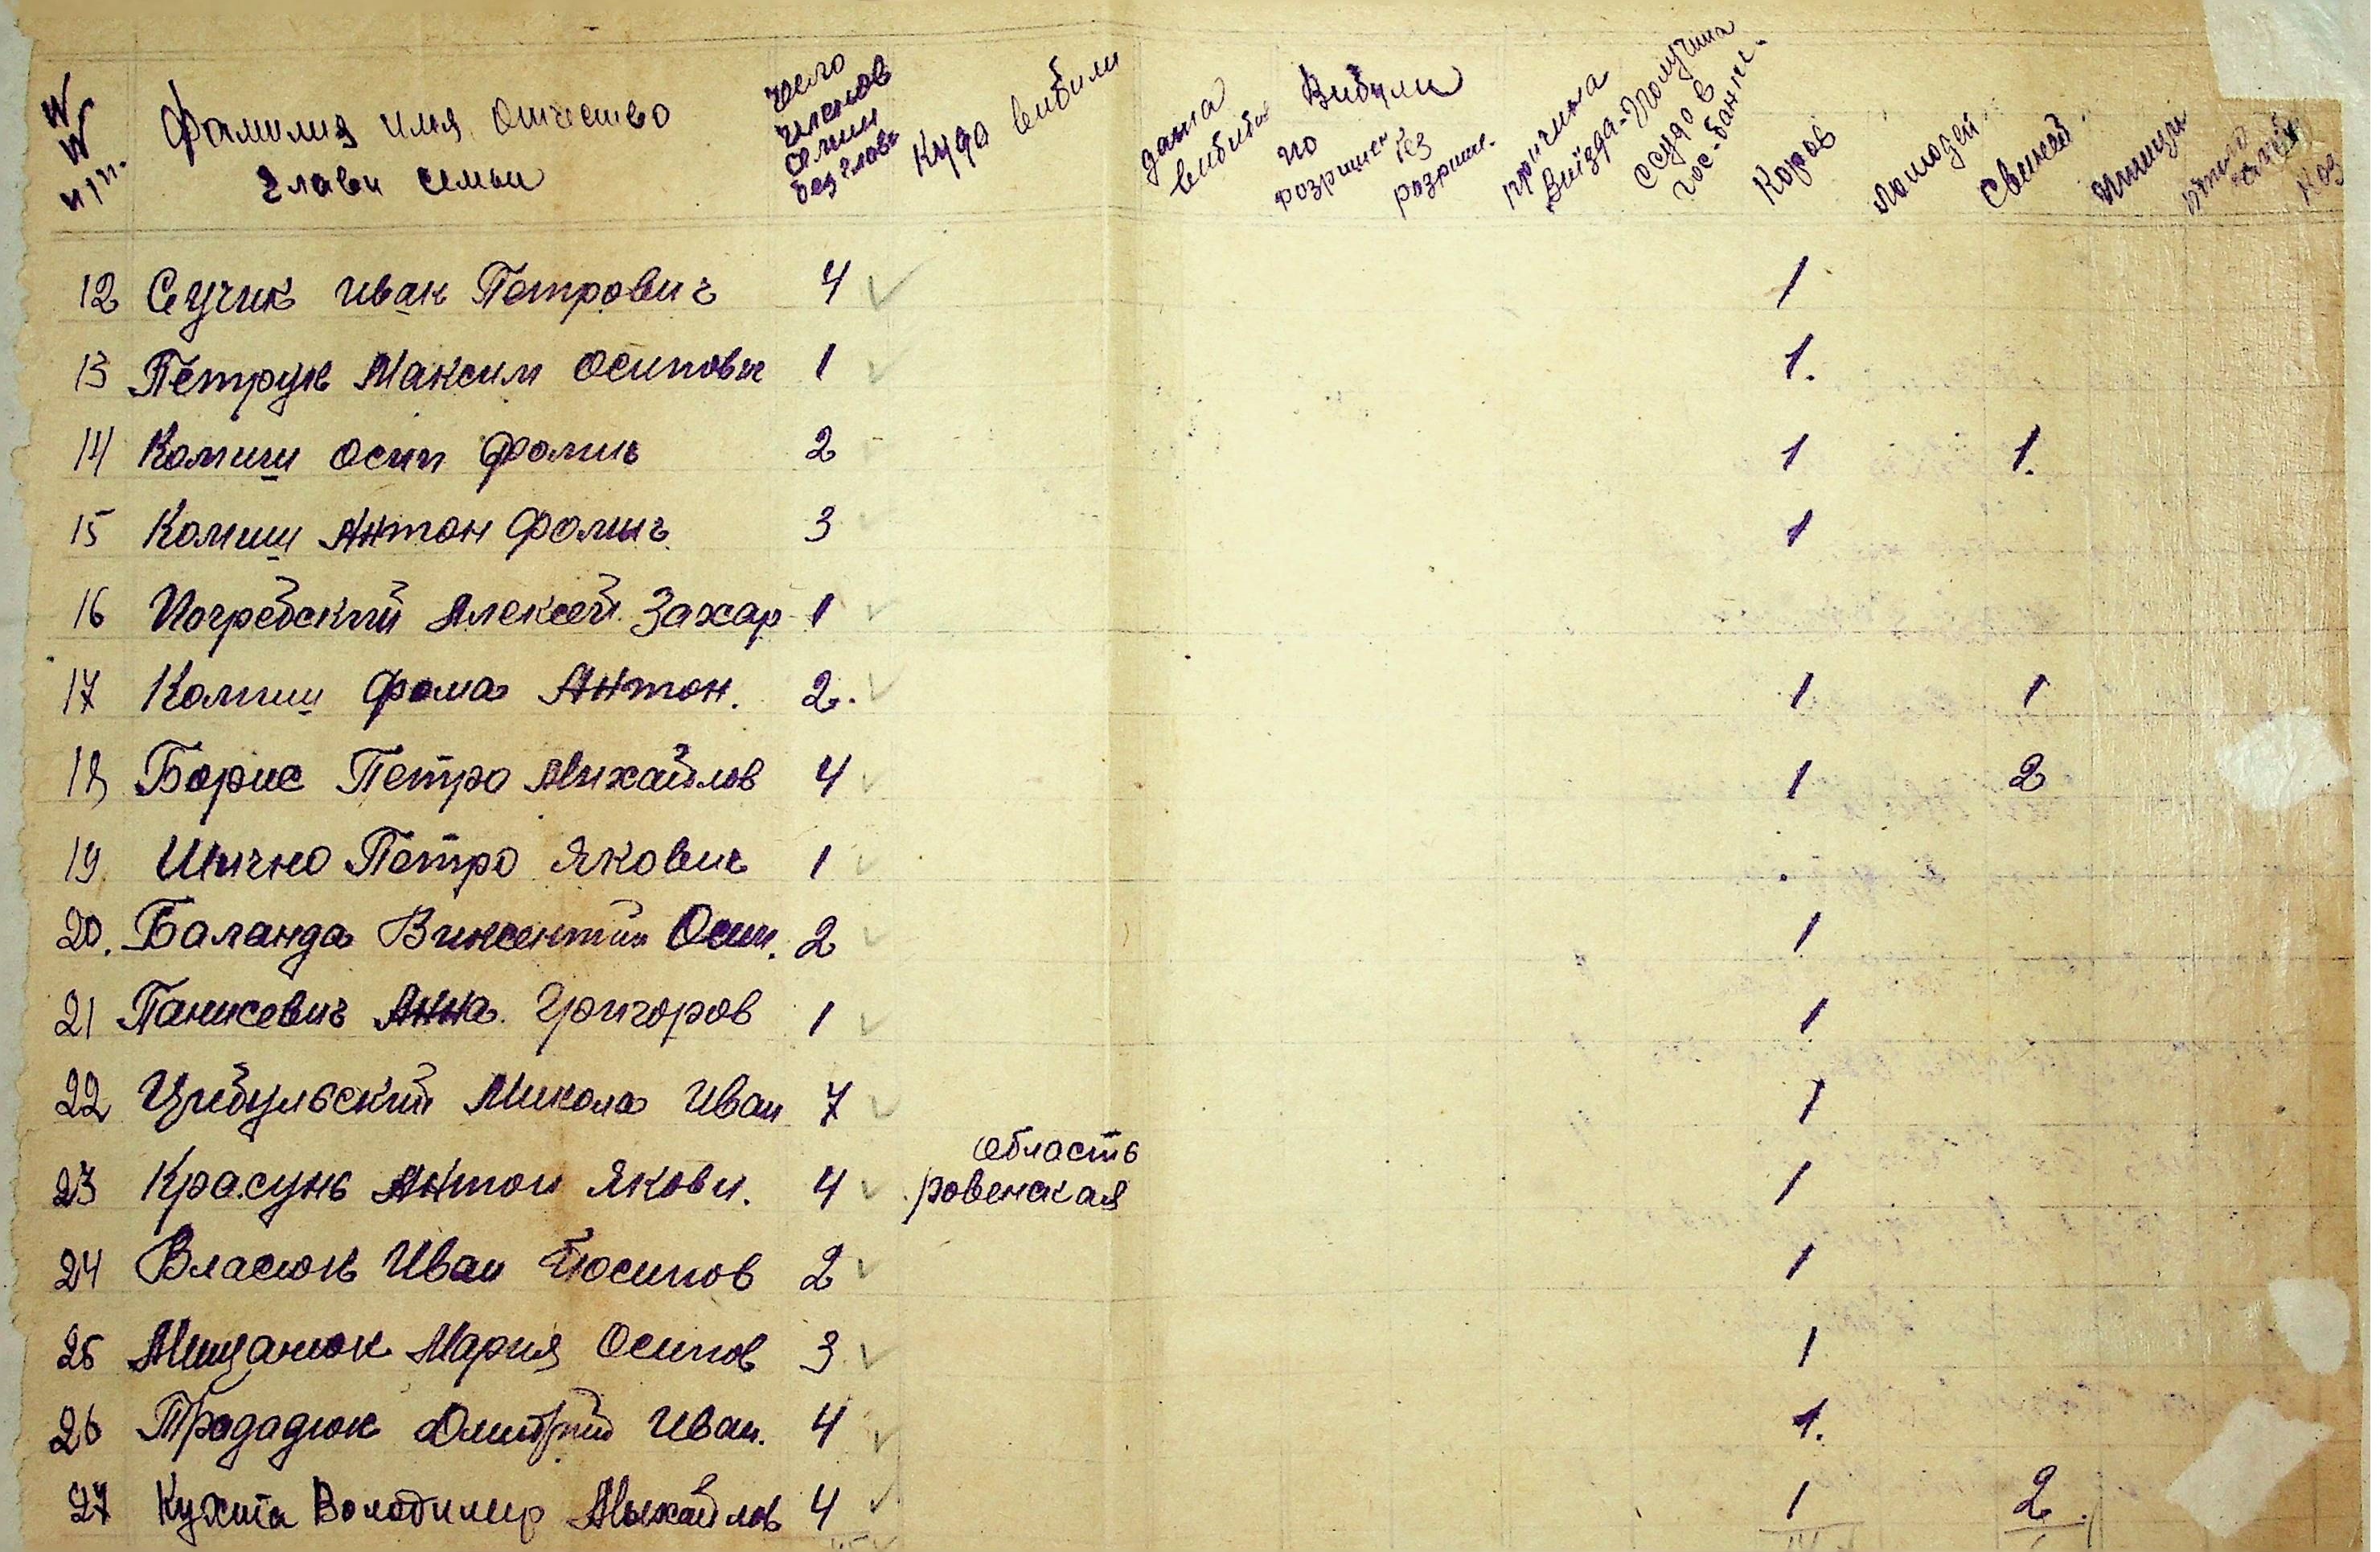 № № п/п. Фамилия имя отчество глави семьи число членов семьи без глави Куда вибили дата вибитя Вибули по розришен без розриш. причина виїзда Получила ссуду в гос-банке. Коров лошадей свиней птици коз
12 Сучик Иван Петрович 4 1
13 Петрук Максим Осипович 1 1.
14 Комиш Осип Фомич 2 1 1.
15 Комиш Антон Фомич 3 1
16 Погребский Алексей Захар 1
17 Комиш Фома Антон. 2. 1 1
18 Борис Петро Михайлов 4 1 2
19 Петро Якович 1
20. Баланда Викентий Осип. 2 1
21 Панисевич Анна Григоров 1 1
22 Цибульский Микола Иван 7 1
23 Красунь Антон Яковл. 4 область ровенская 1
24 Власюк Иван Йосипов 2 1
25 Мищанюк Мария Осипов 3 1
26 Продадюк Дмитрий Иван. 4 1.
27 Кухта Володимир Михайлов 4 1 2.